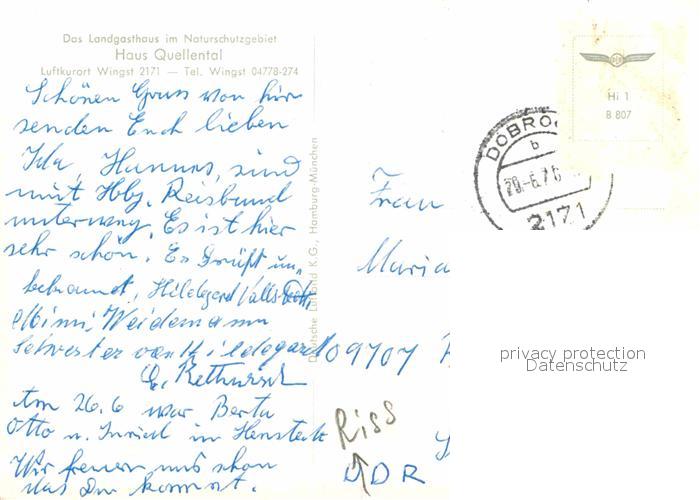 Das Landgasthaus im Naturschutzgebiet
Haus Quellental
Luftkurort Wingst 2171 — Tel. Wingst 04778-274
Schönen Gruss von hir
senden Euch lieben
Ida, Hannus, sind
mit Hbg. Reisbund
unterweg. Es ist hier
sehr schön. Es Grüßt un-
bekannt, Hildegard
Mimi, Weidemann
Schwester von Hildegard
E.
Am 26.6 war Berta
Otto u. in Henstedt
Wir freuen uns schon
das Du kommst.
Deutsche Luftbild K.G., Hamburg-München
HI 1
B 807
DOBRO
b
29.-6.76
2171
Frau
Maria
09707
Riss
DDR
privacy protection
Datenschutz